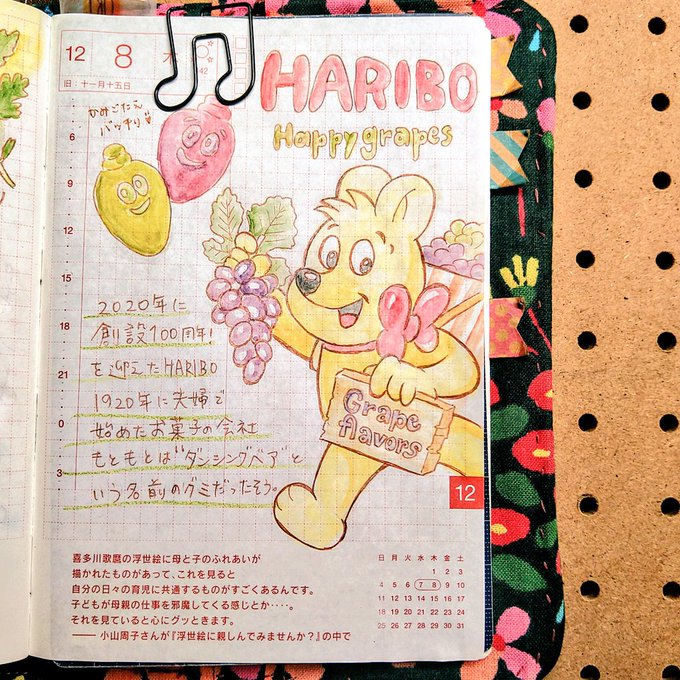 12 8 木
42
旧:十一月十五日
HARIBO
Happy grapes
かみごたえ
バッチリ
6
9
12
15
18
21
0
3
2020年に
創設100周年!
を迎えたHARIBO
1920年に夫婦で
始めたお菓子の会社
もともとは"ダンシングベア"と
いう名前のグミだったそう。
Grape
flavors
12
喜多川歌麿の浮世絵に母と子のふれあいが
描かれたものがあって、これを見ると
自分の日々の育児に共通するものがすごくあるんです。
子どもが母親の仕事を邪魔してくる感じとか‥‥。
それを見ていると心にグッときます。
―― 小山周子さんが『浮世絵に親しんでみませんか?』の中で
日 月 火 水 木 金 土
1 2 3
4 5 6 7 8 9 10
11 12 13 14 15 16 17
18 19 20 21 22 23 24
25 26 27 28 29 30 31